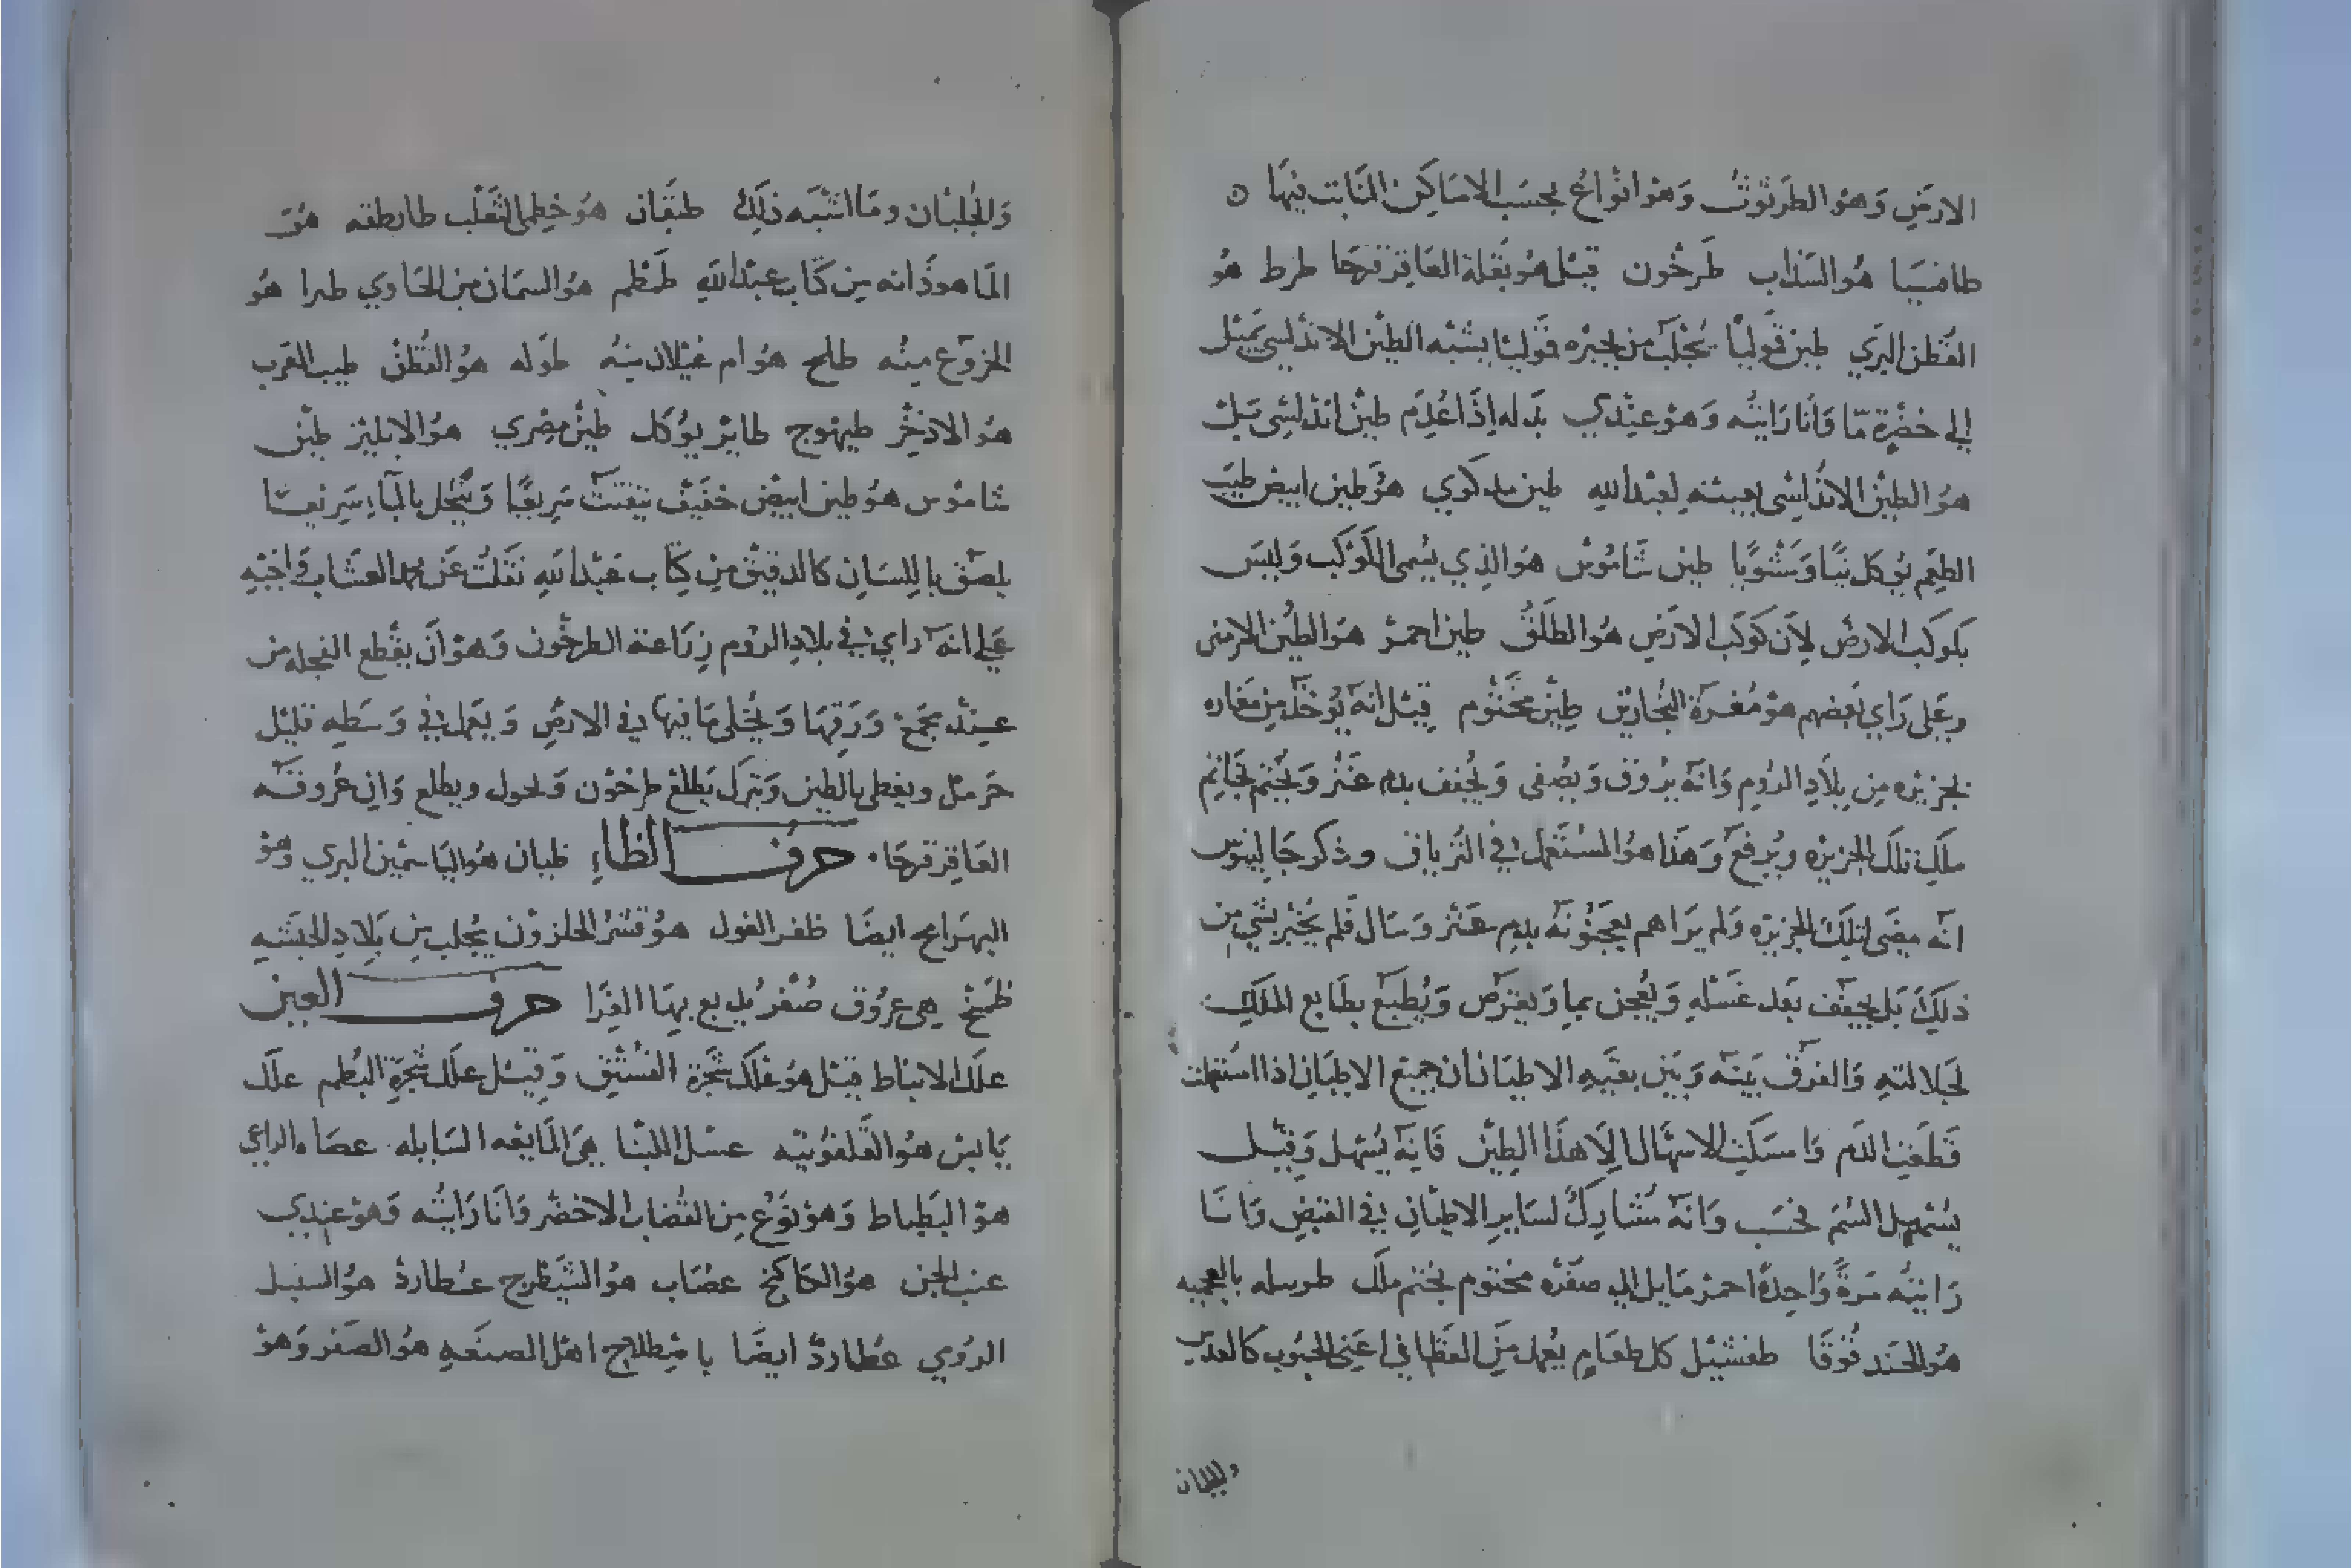 الارض وهو الطرثوث وهو انواع بحسب الاماكن النابت فيها
طافسيا هو السذاب طرخون قيل هو بقلة العاقرقرحا طرط هو
القطن البري طين قوليا يجلب من جزيره قوليا يشبه الطين الاندلسي يميل
الي خضرة مّا وانا رايته وهو عندي بدله اذا عدم طين اندلسي
هو الطين الاندلسي بعينه لعبد الله طين هو طين ابيض طيب
الطعم يوكل نيا ومشويا طين شاموس هو الذي يسمى الكوكب وليس
بكوكب الارض لان كوكب الارض هو الطلق طين احمر هو الطين الارمني
وعلى راي بعضهم هو مغرة النجارين طين مختوم قيل انه يوخذ من مغاره
بجزيره من بلاد الروم وانه يروق ويصفى ويجفف بدم عنز ويختم بخاتم
ملك تلك الجزيره ويرفع وهذا هو المستعمل في الترياق وذكر جالينوس
انه مضى لتلك الجزيره ولم يراهم يعجنونه بدم عنز وسال فلم يخبر بشي من
ذلك بل يجفف بعد غسله ويعجن بما ويقرص ويطبع بطابع الملك
لجلالته والفرق بينه وبين بقيه الاطيان ان جميع الاطيان اذا استعملت
قطعت الدم وامسكت الاسهال الا هذا الطين فانه يسهل وقيل
يسهل السم فحسب وانه مشارك لساير الاطيان في القبض وانا
رايته مرة واحدة احمر مايل الي صفره مختوم بختم ملك طوسله بالعجميه
هو الحندقوقا طفشيل كل طعام يعمل من القطاني اعني الحبوب كالعدس
والجلبان
والجلبان وما اشبه ذلك طبقان هو خطمى الثعلب طارطقه هو
الماهوذانه من كتاب عبد الله طمطم هو السمان من الحاوي طبرا هو
الخروع منه طلح هو ام غيلان منه طوله هو القطن طيب العرب
هو الاذخر طيهوج طاير يوكل طين مصري هو الابليز طين
شاموس هو طين ابيض خفيف يتفتت سريعا وينحل بالماء سريعا
يلصق باللسان كالدقيق من كتاب عبد الله نقلت عن محمد العشاب واخبر
علي انه راي في بلاد الروم زراعة الطرخون وهو ان يقطع الفجله من
عند مجمع ورقها ويخلى ما فيها في الارض ويعمل في وسطه قليل
حرمل ويغطى بالطين ويترك يطلع طرخون ويحول ويطلع وان عروقه
العاقرقرحا حرف الظاء ظيان هو الياسمين البري وهو
البهرامج ايضا ظفر الغول هو قشر الحلزون يجلب من بلاد الحبشه
ظمخ هي عروق صفر يدبغ بها الفرا حرف العين
علك الانباط قيل هو علك شجرة الفستق وقيل علك شجرة البطم علك
يابس هو القلفونيه عسل اللبنا هي المايعه السايله عصاء الراعي
هو البطباط وهو نوع من القضاب الاخضر وانا رايته وهو عندي
عنب الجن هو الكاكنج عصاب هو الشيطرج عطارد هو السنبل
الرومي عطارد ايضا باصطلاح اهل الصنعه هو الصفر وهو